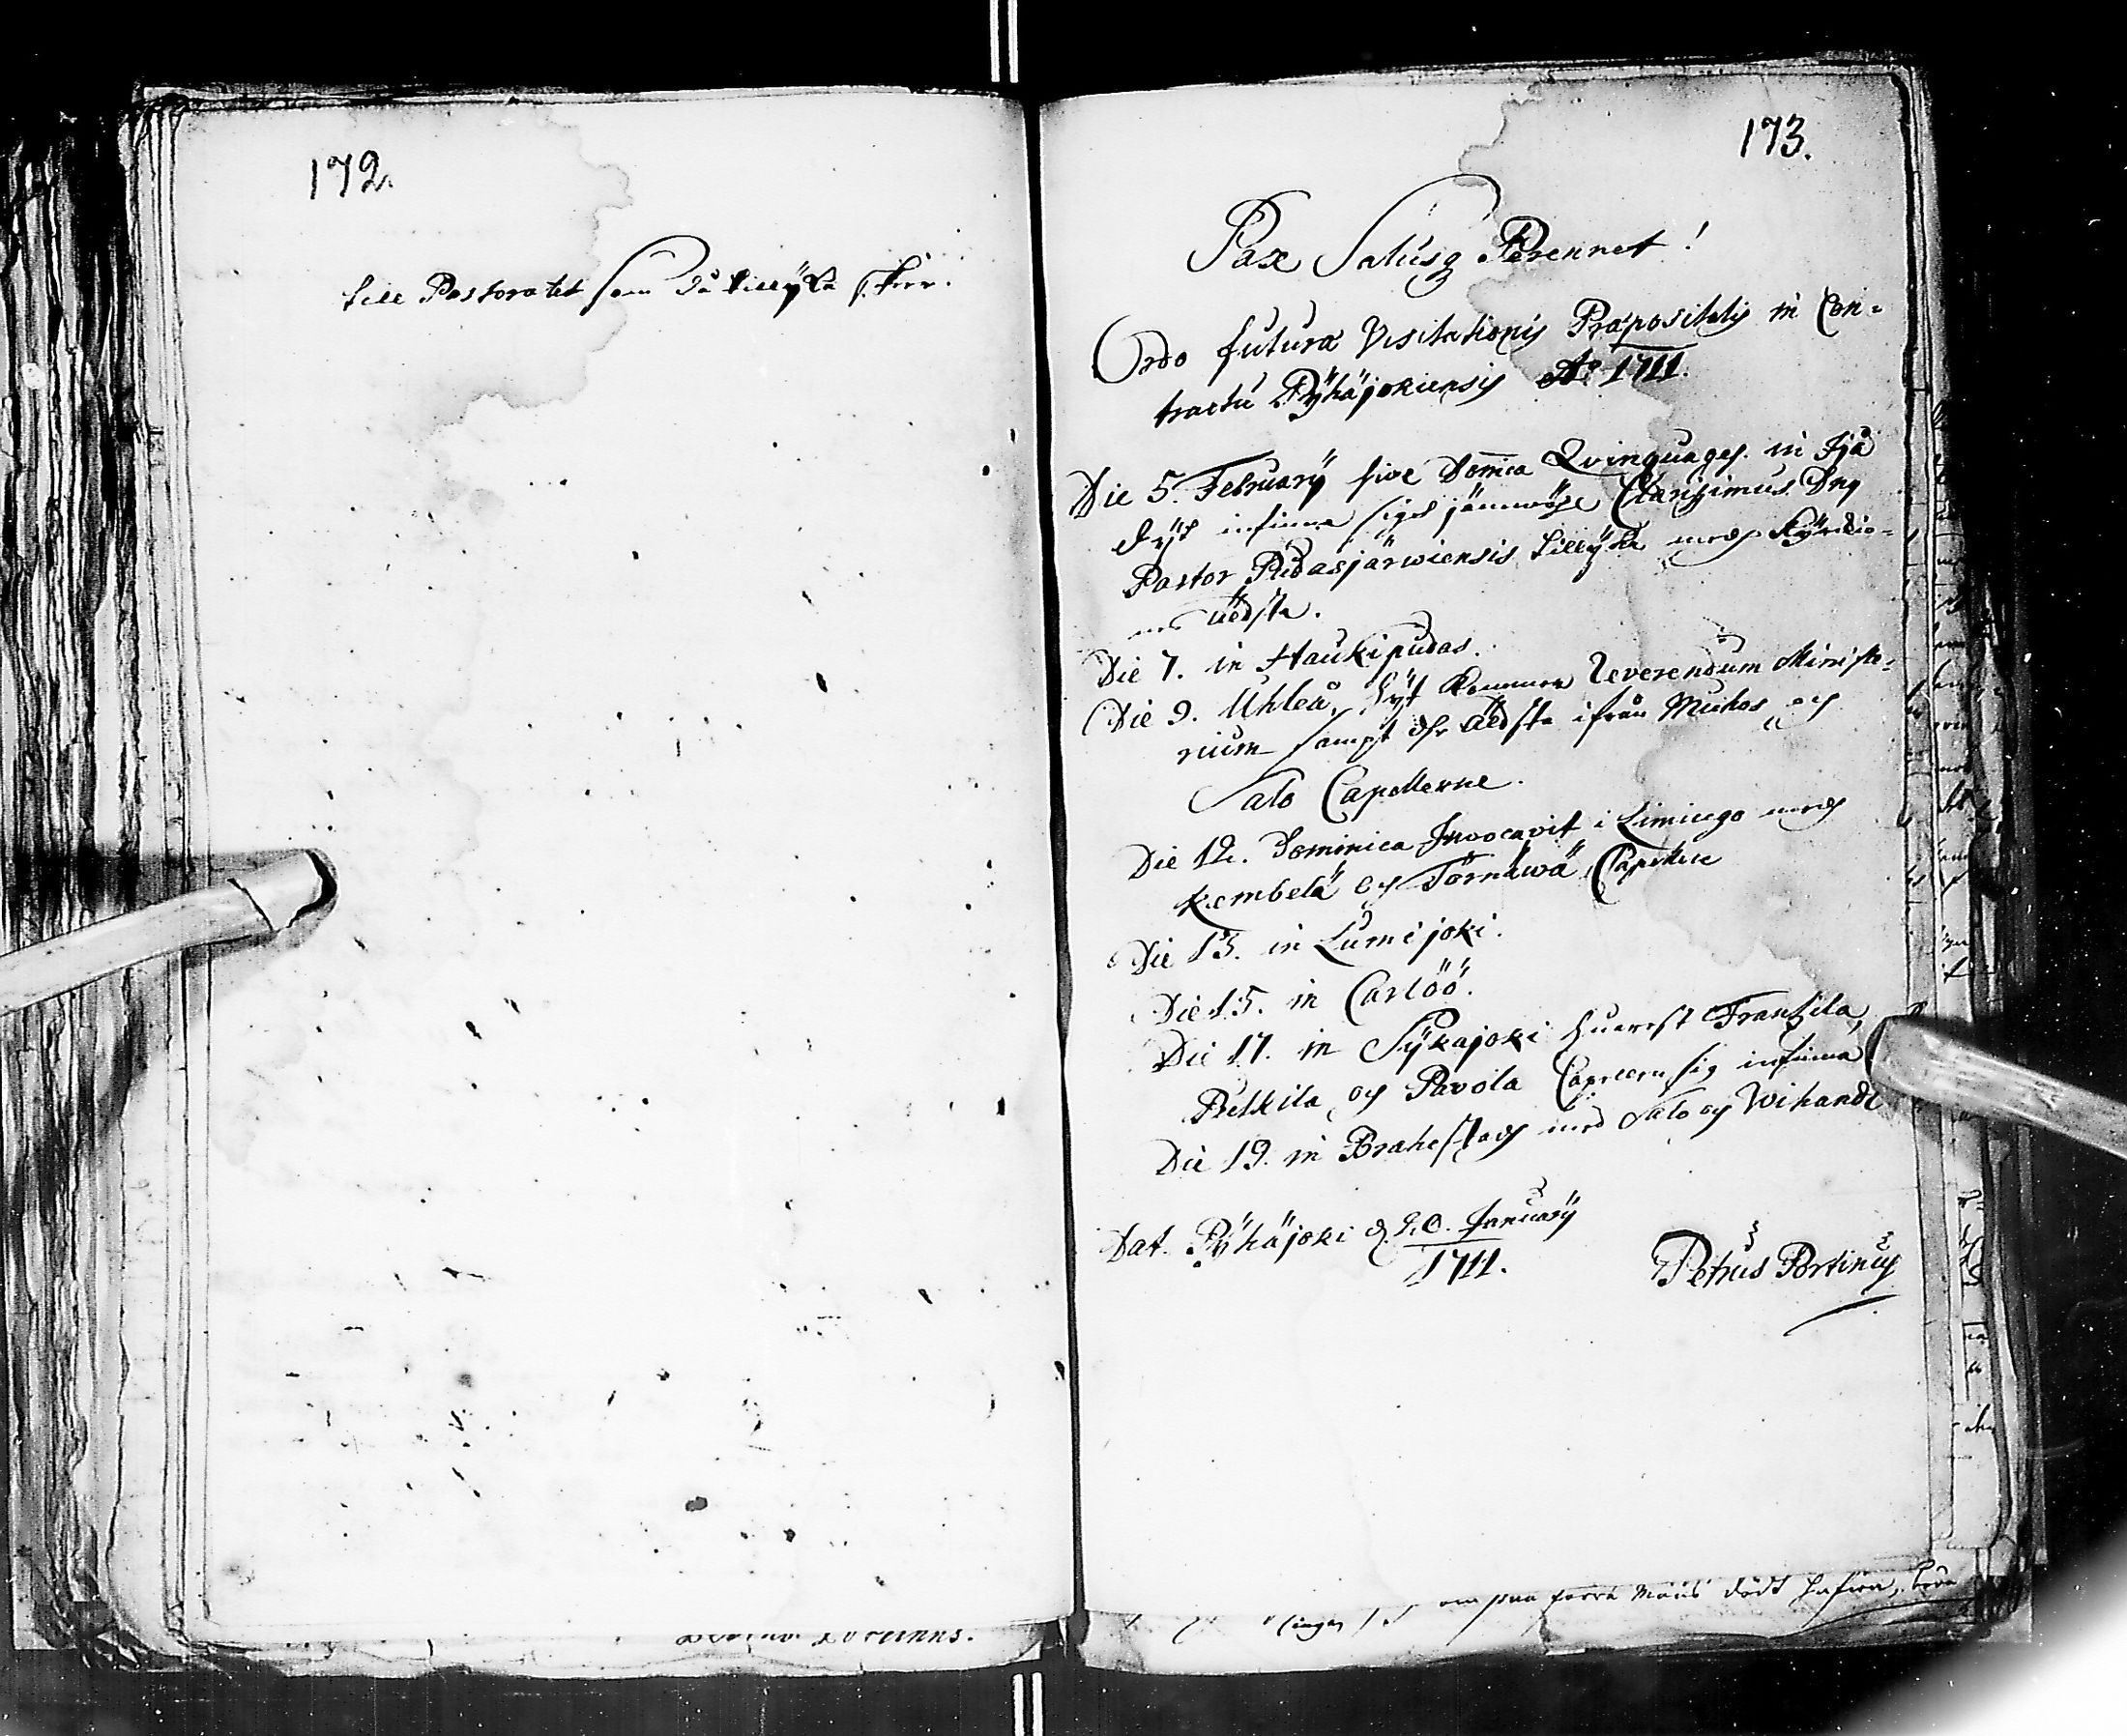 172.
till Pastoratet som då tillijka skier.
173.
Pax Salusq Perennet!
Ordo futura Visitationis Præpositalis in Con-
tractu Pÿhäjokiensis Ao 1711.
Die 5. Februarÿ sive Domica Qvinquages. in Ijå
dijt infinna sigh jämwähl Clarissimus Dnq
Pastor Pudasjärwiensis tillijka medh Kÿrckio-
nes äldsta.
Die 7. in Haukipudas.
Die 9. Uhleå, hijt kommer Reverendum Ministe-
rium sampt the äldsta ifrån Muhos och
Salo Capellerne.
Die 12. Dominica Invocavit i Limingo medh
Kembelä och Törnäwä Capeller
Die 13. in Lumijoki.
Die 15. in Carlöö.
Die 17. in Sijkajoki hwarest Frantzila,
Pulkila och Pavola Capellern sig infinna
Die 19. in Brahestadh med Salo och Wihandi
Dat. Pÿhäjoki d. 20. Januarÿ
1711.
Petrus Portinus
förra Måns dödt hafwa,